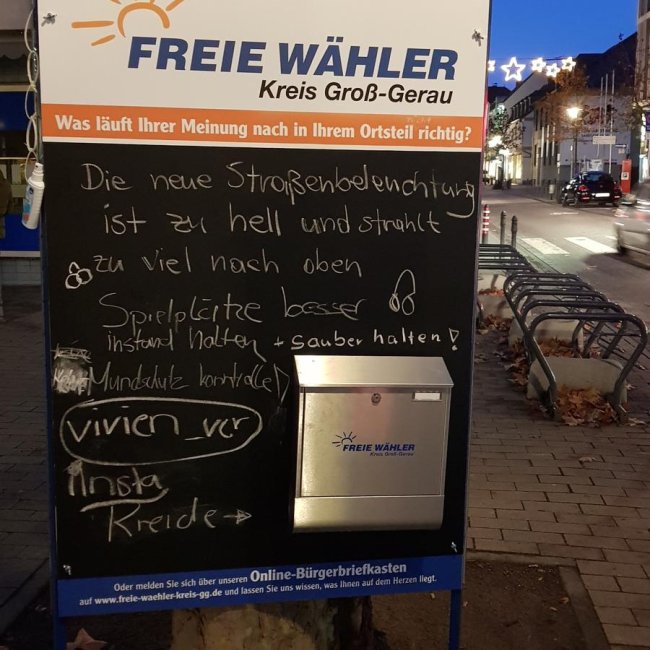 FREIE WÄHLER
Kreis Groß-Gerau
Was läuft Ihrer Meinung nach in Ihrem Ortsteil richtig?
Die neue Straßenbeleuchtung
ist zu hell und strahlt
zu viel nach oben
Spielplätze besser
instand halten + sauber halten!
Mundschutz kontrolle!
vivien_ver
Insta
Kreide →
FREIE WÄHLER
Kreis Groß-Gerau
Oder melden Sie sich über unseren Online-Bürgerbriefkasten
auf www.freie-waehler-kreis-gg.de und lassen Sie uns wissen, was Ihnen auf dem Herzen liegt.